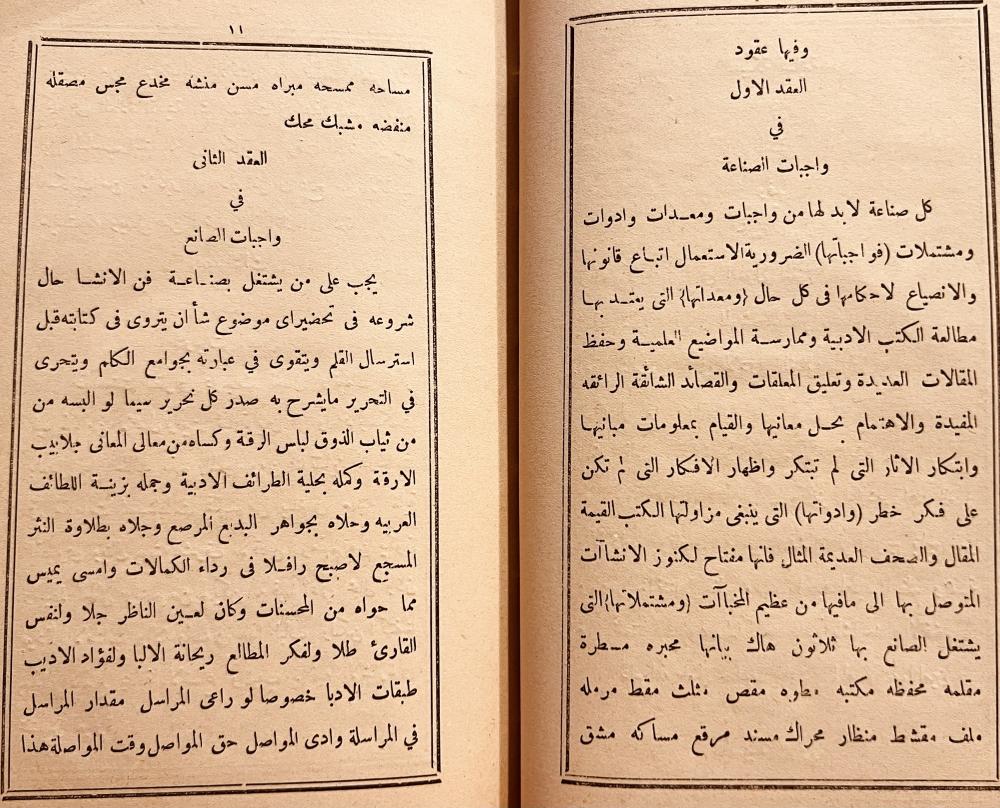 وفيها عقود
العقد الاول
في
واجبات الصناعة
كل صناعة لابد لها من واجبات ومعدات وادوات
ومشتملات (فواجباتها) الضرورية الاستعمال اتباع قانونها
والانصياع لاحكامها فى كل حال (ومعداتها) التى يعتد بها
مطالعة الكتب الادبية وممارسة المواضيع العلمية وحفظ
المقالات العديدة وتعليق المعلقات والقصائد الشائقة الرائقه
المفيدة والاهتمام بحل معانيها والقيام بمعلومات مبانيها
وابتكار الاثار التى لم تبتكر واظهار الافكار التى لم تكن
على فكر خطر (وادواتها) التى ينبغى مزاولتها الكتب القيمة
المقال والصحف العديمة المثال فانها مفتاح لكنوز الانشاآت
المتوصل بها الى مافيها من عظيم المخبآت (ومشتملاتها) التى
يشتغل الصانع بها ثلاثون هاك بيانها محبره مسطرة
مقلمه محفظه مكتبه مطوه مقص مثلث مقط مرمله
ملف مقشط منظار محراك مسند مرقع مساكه مشق
١١
مساحه ممسحه مبراه مسن منشه مخدع مجس مصقله
منفضه مشبك محك
العقد الثانى
في
واجبات الصانع
يجب على من يشتغل بصناعة فن الانشا حال
شروعه فى تحضير اى موضوع شأ ان يتروى فى كتابته قبل
استرسال القلم ويتقوى في عبارته بجوامع الكلم ويتحرى
في التحرير مايشرح به صدر كل نحرير سيما لو البسه من
من ثياب الذوق لباس الرقة وكساه من معالى المعانى جلابيب
الارقة وكمله بحلية الطرائف الادبية وجمله بزينة اللطائف
العربيه وحلاه بجواهر البديع المرصع وجلاه بطلاوة النثر
المسجع لاصبح رافلا فى رداء الكمالات وامسى يميس
مما حواه من المحسنات وكان لعين الناظر جلا ولنفس
القارئ طلا ولفكر المطالع ريحانة الالبا ولفؤاد الاديب
طبقات الادبا خصوصا لو راعى المراسل مقدار المراسل
في المراسلة وادى المواصل حق المواصل وقت المواصلة هذا